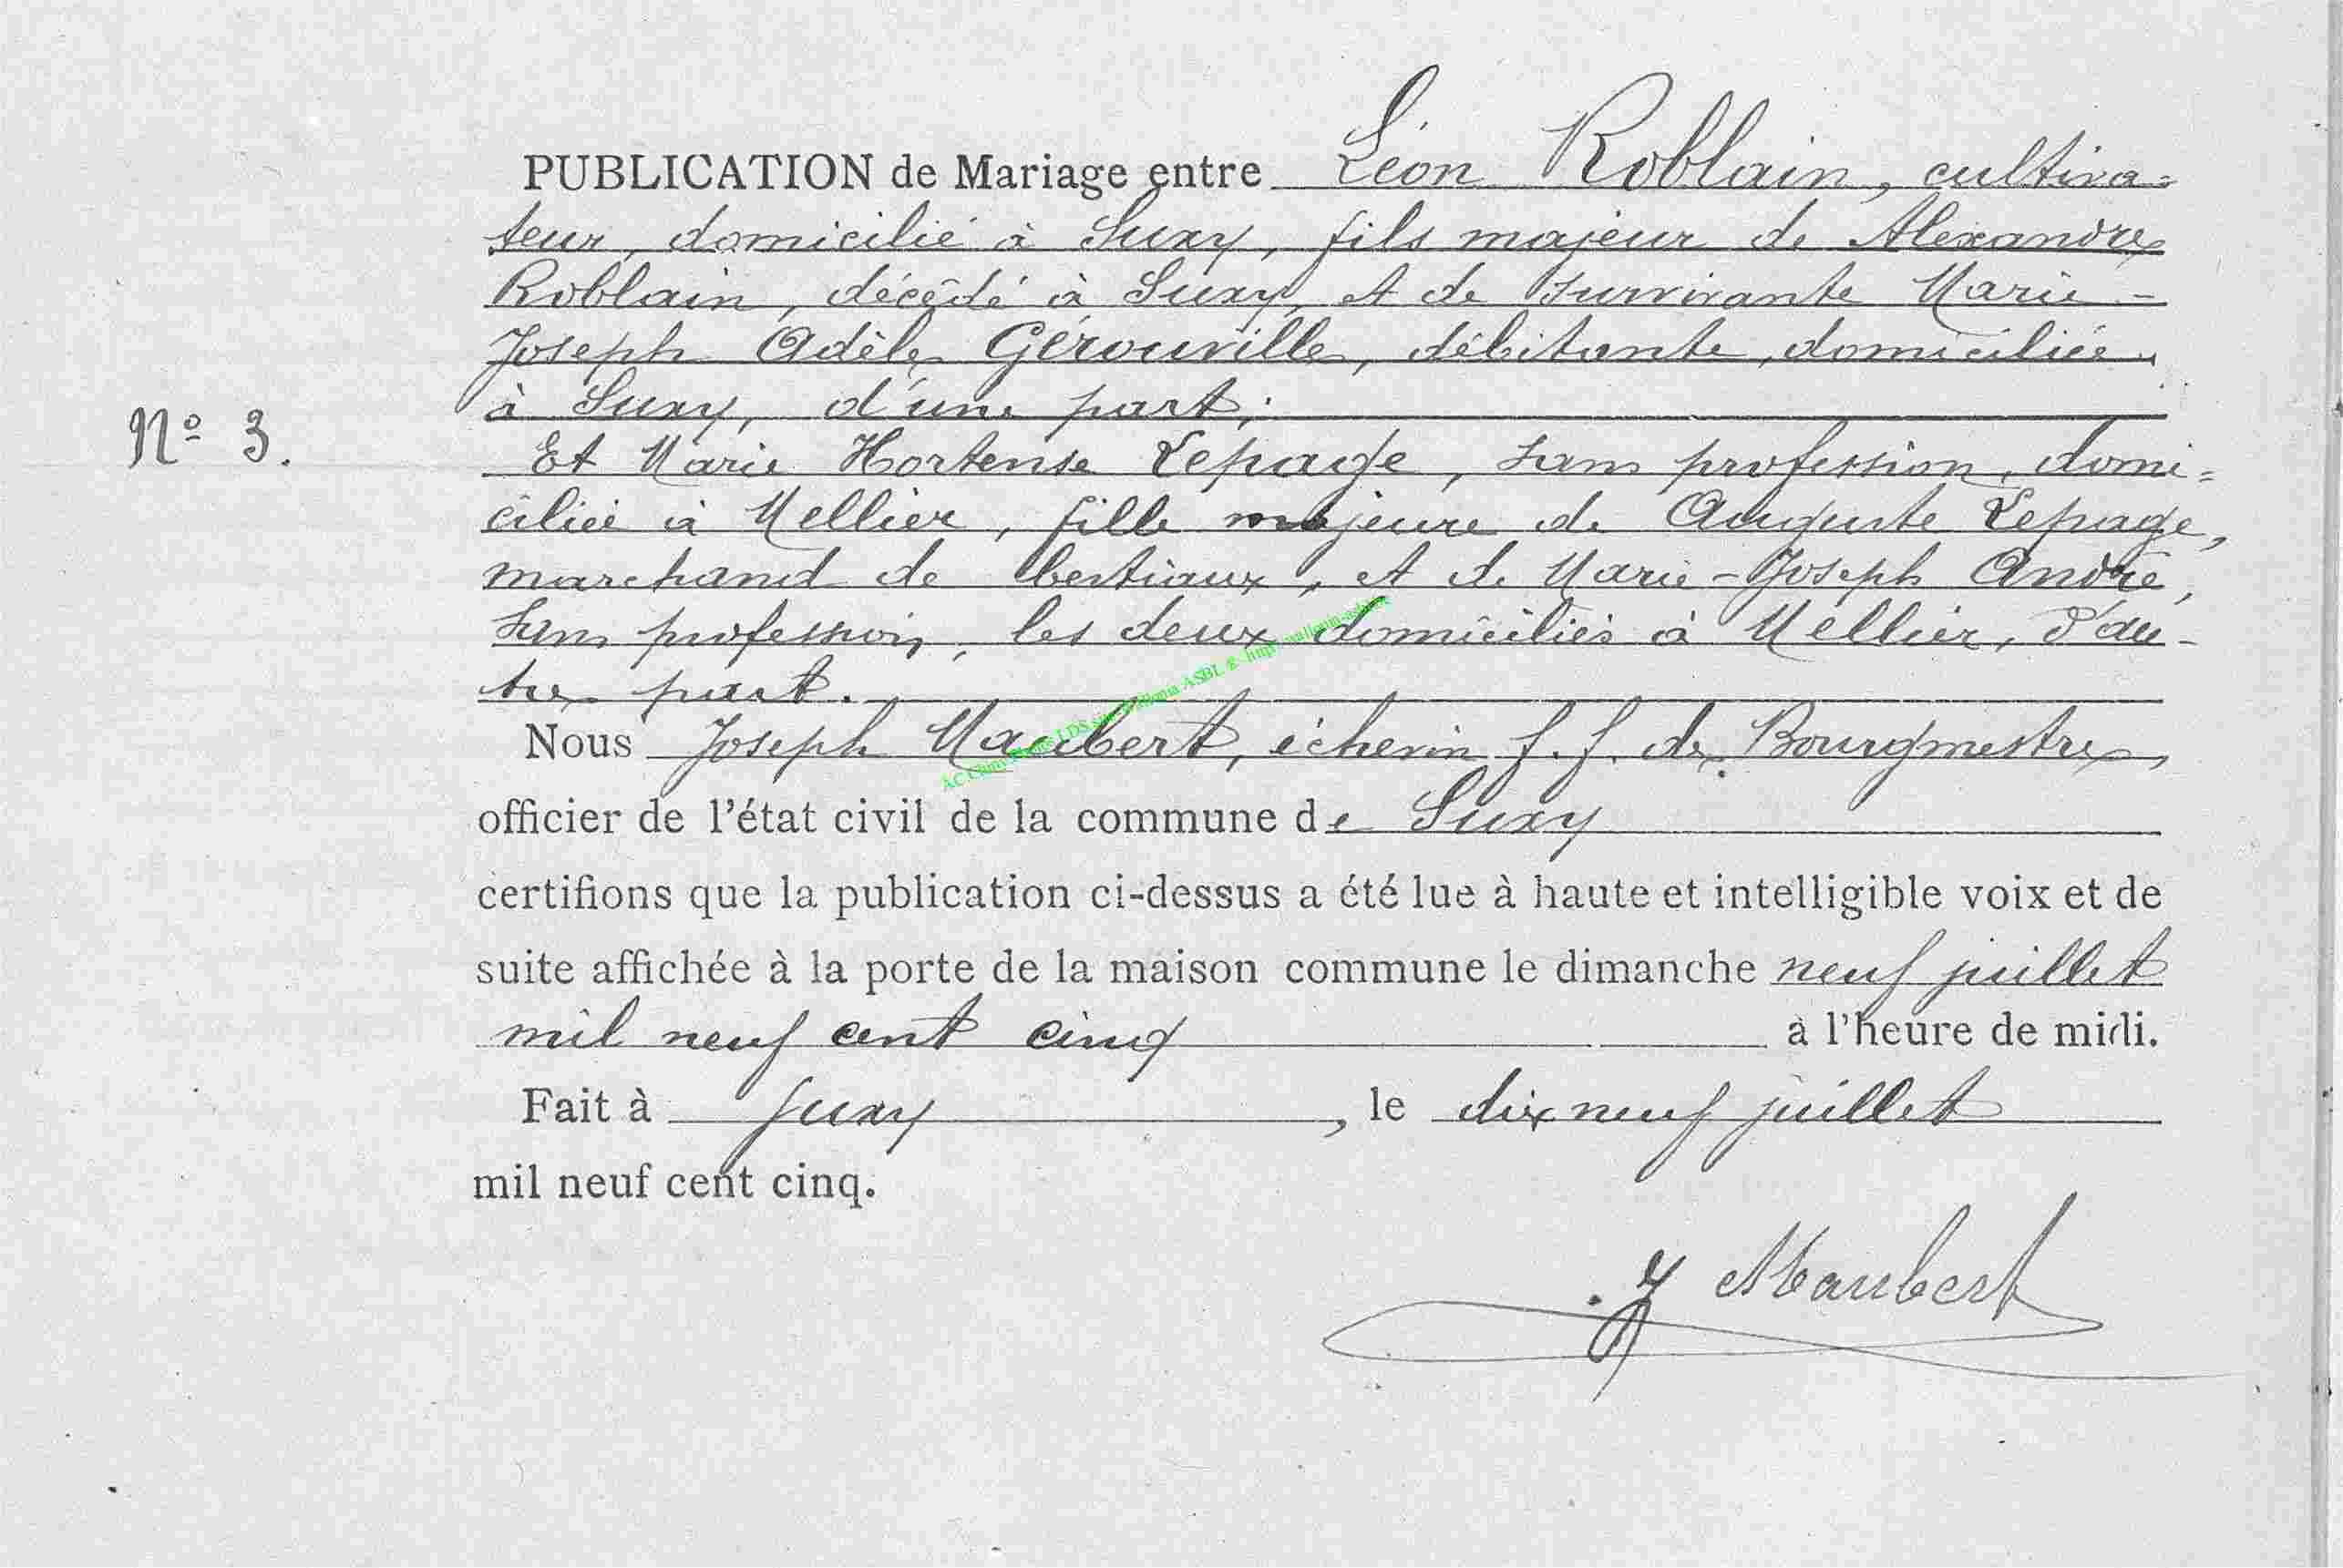 PUBLICATION de Mariage entre Léon Roblain, cultiva=
teur, domicilié à Suxy, fils majeur de Alexandre
Roblain, décédé à Suxy, et de survivante Marie-
Joseph Adèle Gérouville, débitante, domiciliée
à Suxy, d'une part;
Nº 3.
Et Marie Hortense Lepage, sans profession, domi=
ciliée à Mellier, fille majeure de Auguste Lepage,
marchand de bestiaux, et de Marie-Joseph André,
sans profession, les deux domiciliés à Mellier, d'au-
tre part.
Nous Joseph Maubert, échevin f.f. de Bourgmestre,
officier de l'état civil de la commune de Suxy
certifions que la publication ci-dessus a été lue à haute et intelligible voix et de
suite affichée à la porte de la maison commune le dimanche neuf juillet
mil neuf cent cinq à l'heure de midi.
Fait à Suxy, le dix neuf juillet
mil neuf cent cinq.
J Maubert